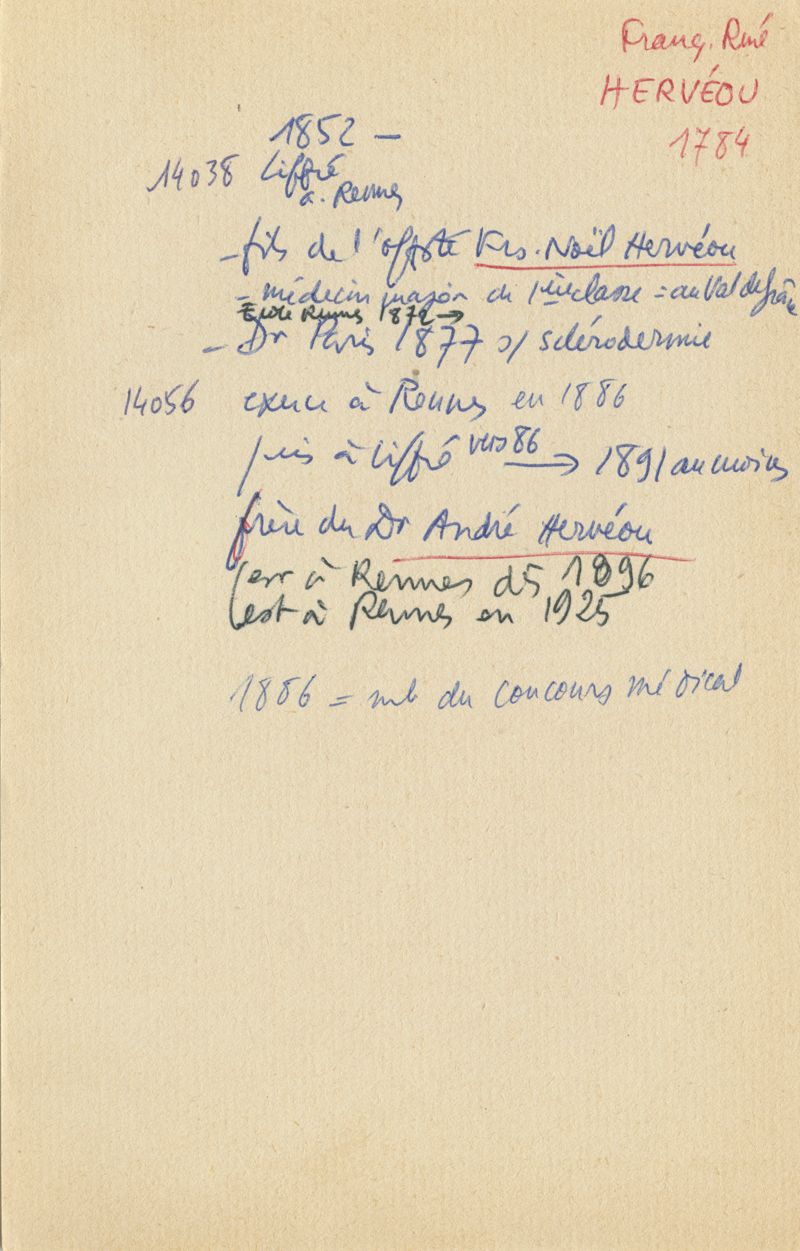 Franç. René
HERVÉOU
1784
1852 –
14038 Liffré
a. Rennes
– fils de l'offsté Frs. Noël Hervéou
= médecin major de 1ère classe = au Val de Grâce
École Rennes 1872 →
– Dr Paris 1877 s/ sclérodermie
14056 exerce à Rennes en 1886
puis à Liffré vers 86 → 1891 au moins
frère du Dr André Hervéou
(err à Rennes ds 1896
(est à Rennes en 1925
1886 = mb du concours médical